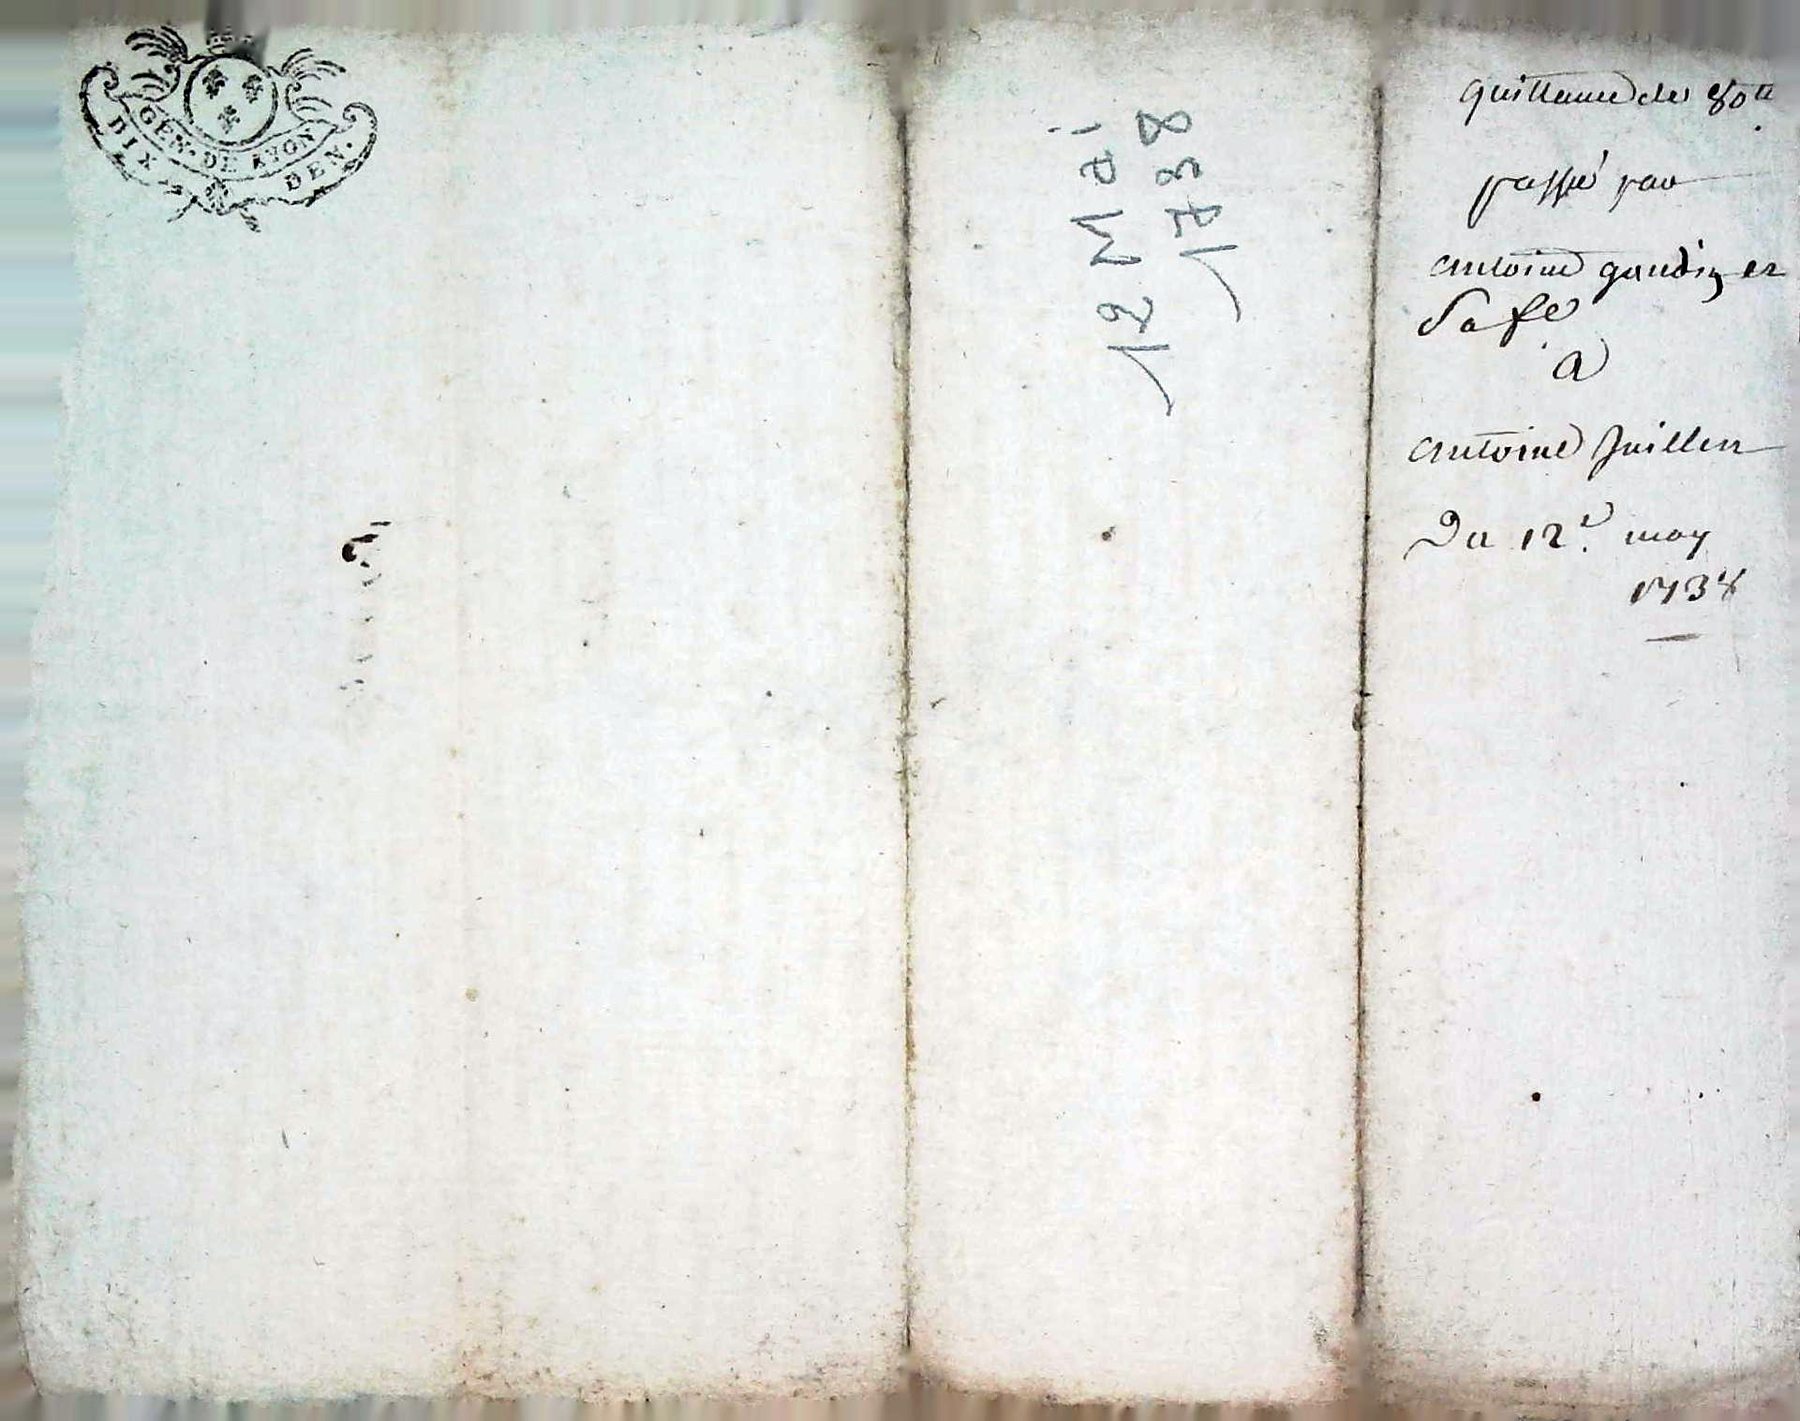 GEN. DE LYON
DIX DEN.
12 Mai
1738
quittance de 80 tt
passé par
antoine gaudin et
Sa fe
a
antoine Juillen
Du 12e may
1738